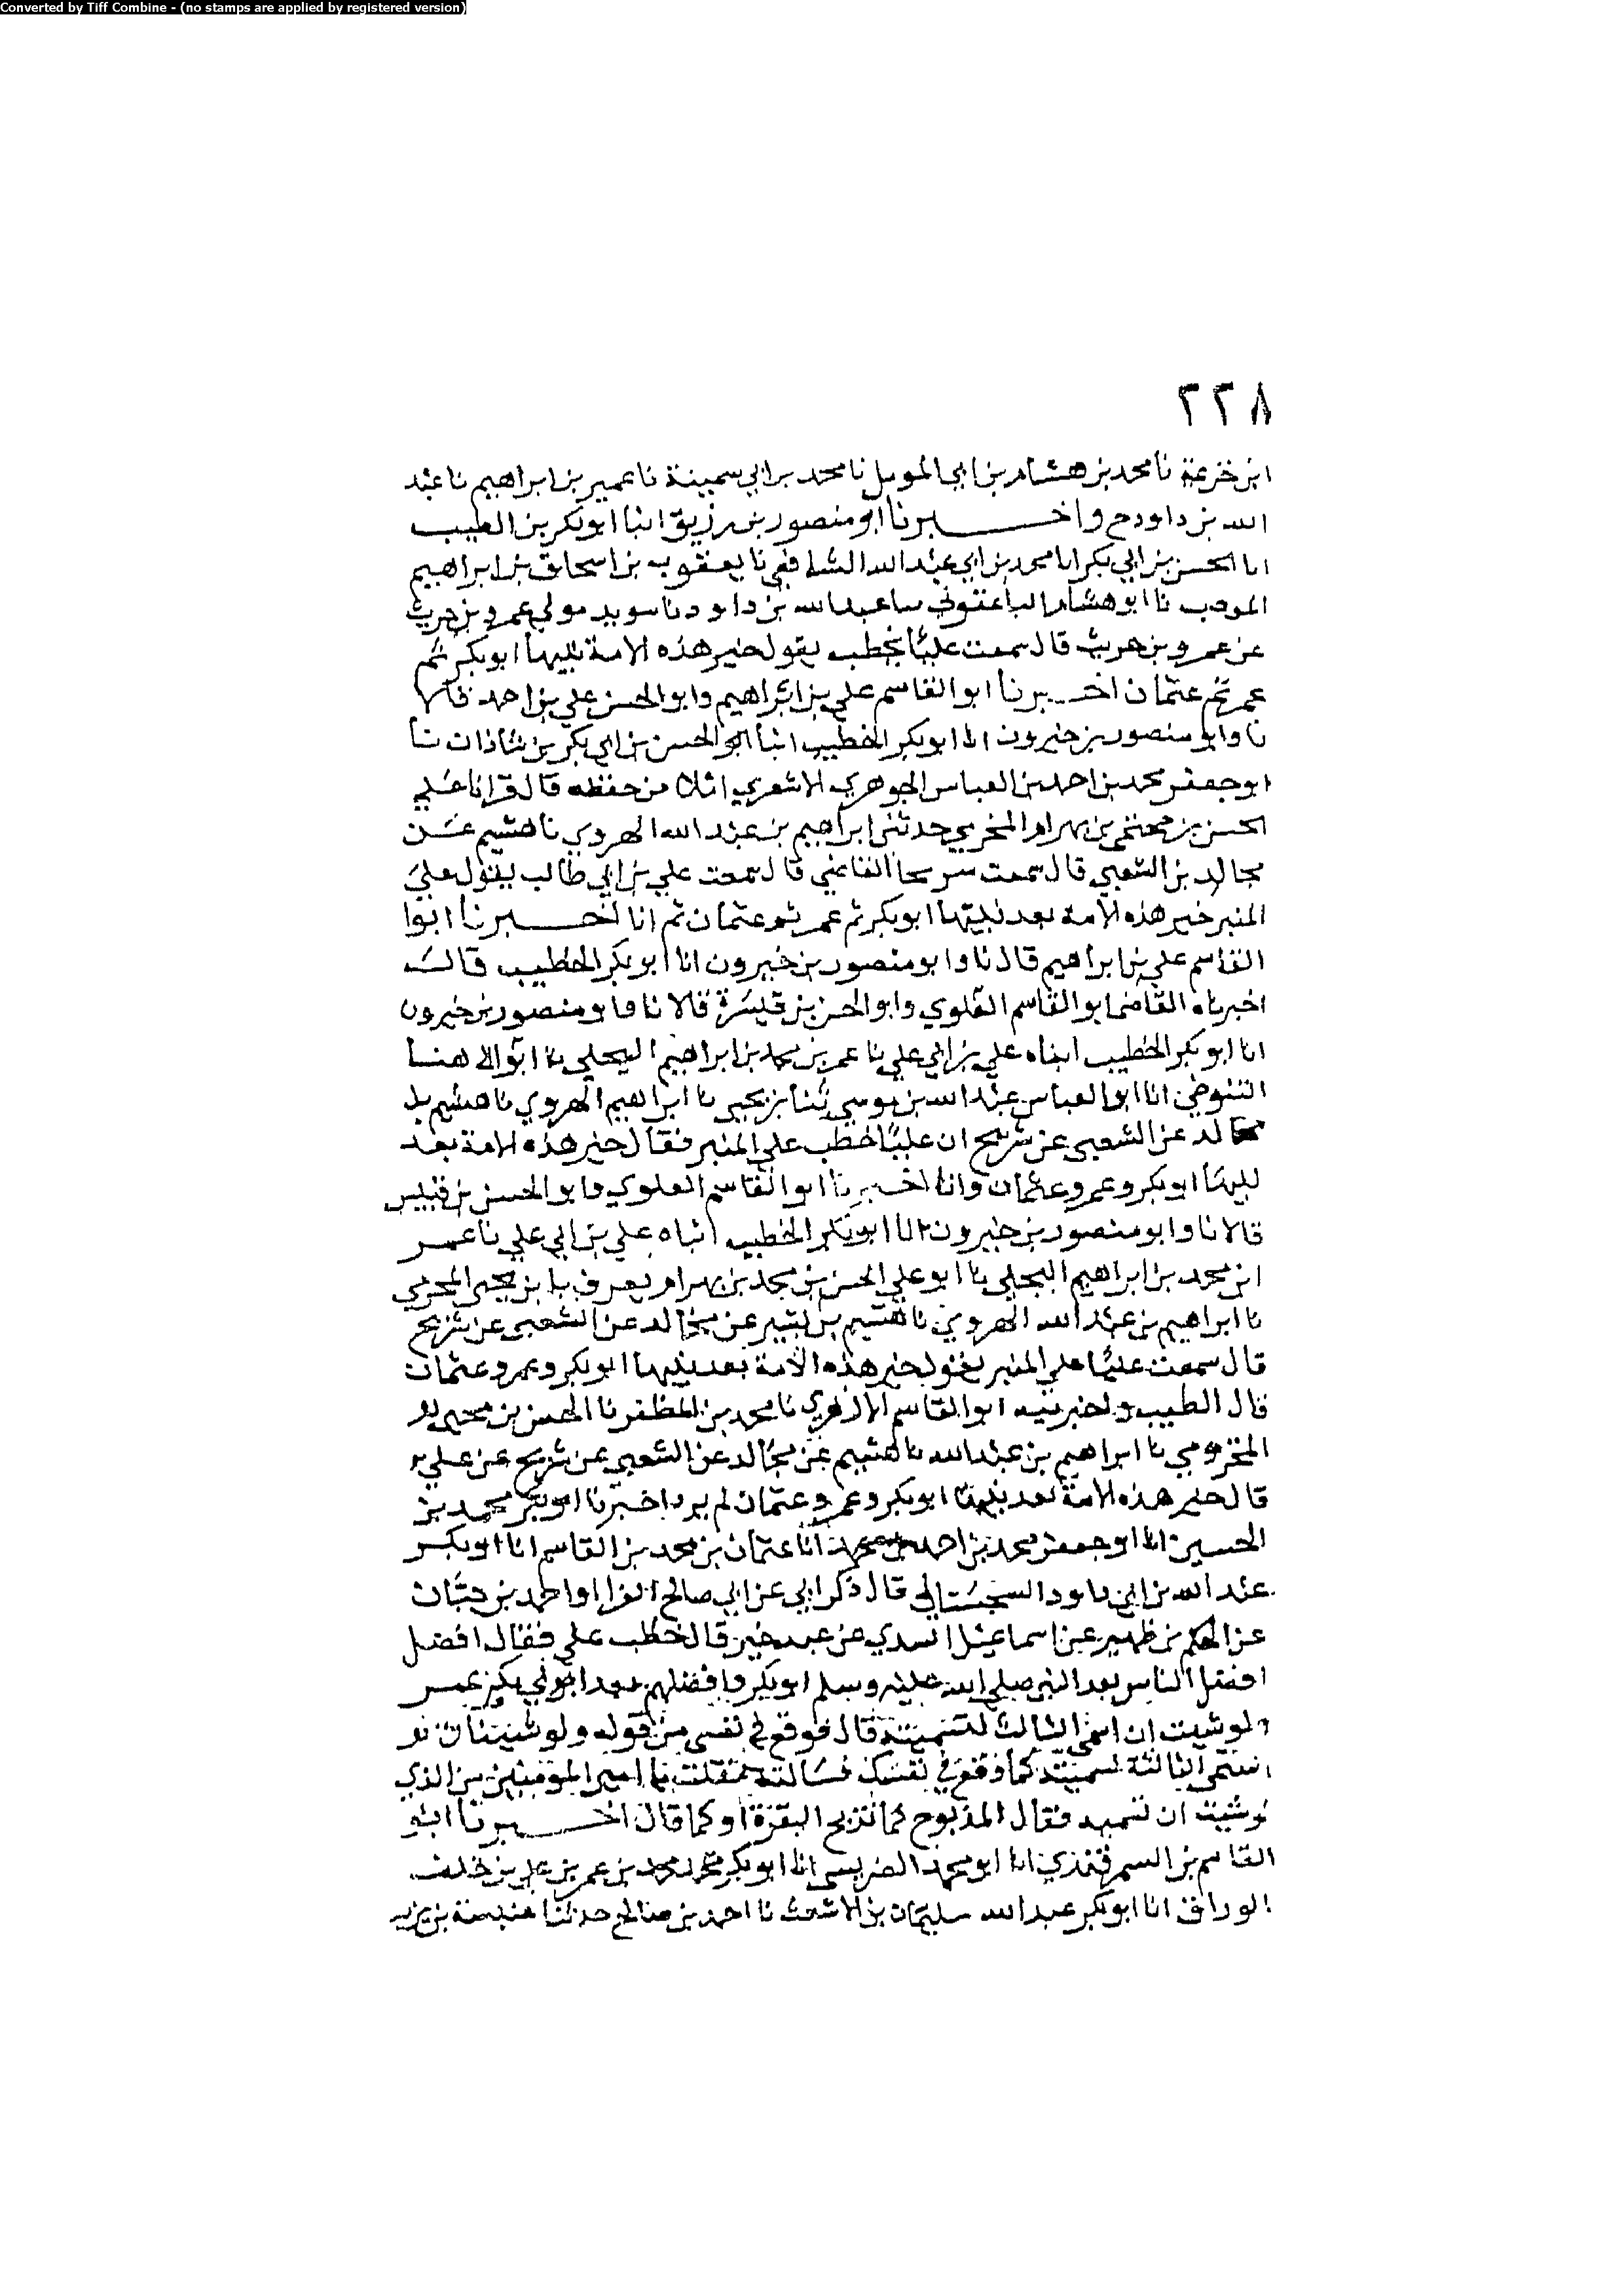 Converted by Tiff Combine - (no stamps are applied by registered version)
٢٢٨
ابن خزيمة نا محمد بن هشام بن ابي المومل نا محمد بن ابي سمينة نا عمير بن ابراهيم نا عبد
الله بن داود ح واخبرنا ابو منصور بن زريق انبا ابو بكر بن الطيب
انا الحسن بن ابي بكر انا محمد بن ابي عبد الله الشافعي نا يعقوب بن اسحاق بن ابراهيم
المودب نا ابو هشام عبد الله بن داود نا سويد مولي عمرو بن حريث
عن عمرو بن حريث قال سمعت عليًا يخطب يقول خير هذه الامة نبيها ابو بكر ثم
عمر ثم عثمان اخبرنا ابو القاسم علي بن ابراهيم وابو الحسن علي بن احمد قالا
نا وابو منصور بن خيرون انا ابو بكر الخطيب انبا الحسن بن ابي بكر بن شاذان نا
ابو جعفر محمد بن احمد بن العباس الجوهري الاشعري املا من حفظه قال قرانا علي
الحسن بن بن بهرام المخرمي حدثني ابراهيم بن عبد الله الهروي نا هشيم عن
مجالد بن الشعبي قال سمعت سريحا القاضي قال سمعت علي بن ابي طالب يقول علي
المنبر خير هذه الامة بعد نبيها ابو بكر ثم عمر ثم عثمان ثم انا اخبرنا ابوا
القاسم علي بن ابراهيم قال نا وابو منصور بن خيرون انا ابو بكر الخطيب قال
اخبرناه القاضي ابو القاسم العلوي وابو الحسن بن قبيس قالا نا وابو منصور بن خيرون
انا ابو بكر الخطيب انباه علي بن ابي علي نا عمر بن محمد بن ابراهيم البجلي نا
التنوخي انا ابو العباس عبد الله بن موسي بن يحيي نا ابراهيم الهروي نا هشيم
عن الشعبي عن شريح ان عليًا خطب علي المنبر فقال خير هذه الامة بعد
نبيها ابو بكر وعمر وعثمان وانا اخبرنا ابو القاسم العلوي وابو الحسن بن قبيس
قالا نا وابو منصور بن خيرون انا ابو بكر الخطيب انباه علي بن ابي علي نا عمر
ابن محمد بن ابراهيم البجلي نا ابو علي الحسن بن محمد بن بهرام يعرف بابن يحيي المخرمي
نا ابراهيم بن عبد الله الهروي نا هشيم بن بشير عن مجالد عن الشعبي عن شريح
قال سمعت عليًا علي المنبر يقول خير هذه الامة بعد نبيها ابو بكر وعمر وعثمان
قال الطيب واخبرنيه ابو القاسم الازهري نا محمد بن المظفر نا الحسن بن
المخزومي نا ابراهيم بن عبد الله نا هشيم عن مجالد عن الشعبي عن شريح عن علي
قال خير هذه الامة بعد نبيها ابو بكر وعمر وعثمان لم يرد اخبرنا ابو بكر محمد بن
الحسين انا ابو جعفر محمد بن احمد بن محمد انا عثمان بن محمد بن القاسم انا ابو بكر
عبد الله بن ابي داود السجستاني قال ذكر ابي عن ابي صالح الفرا احمد بن حبان
عن الحكم بن ظهير عن اسماعيل السدي عن عبد خير قال خطب علي فقال افضل
افضل الناس بعد النبي صلي الله عليه وسلم ابو بكر وافضلهم بعد ابي بكر عمر
ولو شيت ان اسمي الثالث لسميته قال فوقع في نفسي من قوله ولو شيت ان
اسمي الثالثة لسميته كما وقع في نفسك فسالته فقلت يا امير المومنين من الذي
لو شيت ان تسميه فقال المذبوح كما تذبح البقرة او كما قال اخبرنا ابو
القاسم بن السمرقندي انا ابو محمد انا ابو بكر محمد بن عمر بن علي بن خلف
الوراق انا ابو بكر عبد الله سليمان بن الاشعث نا احمد بن صالح حدثنا عنبسة بن يزيد